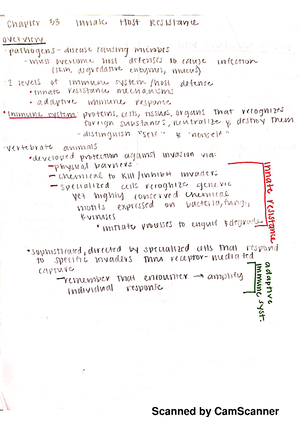 Chapter 33 Innate Host Resistance
overview
-pathogens - disease causing microbes
-must overcome host defenses to cause infection
(skin, degredative enzymes, mucus)
-2 levels of immune system/host defense
•innate resistance mechanisms
•adaptive immune response
•Immune system: proteins, cells, tissues, organs that recognizes
foreign substances, neutralize & destroy them
-distinguish "self" & "nonself"
-vertebrate animals
•developed protection against invasion via:
-physical barriers
-chemical to kill/inhibit invaders
-specialized cells recognize generic
yet highly conserved chemical
motifs expressed on bacteria, fungi,
& viruses
•initiate process to engulf & degrade
innate resistance
•sophisticated, directed by specialized cells that respond
to specific invaders thru receptor-mediated
capture
-remember that encounter → amplify
individual response
adaptive
immune syst.
Scanned by CamScanner